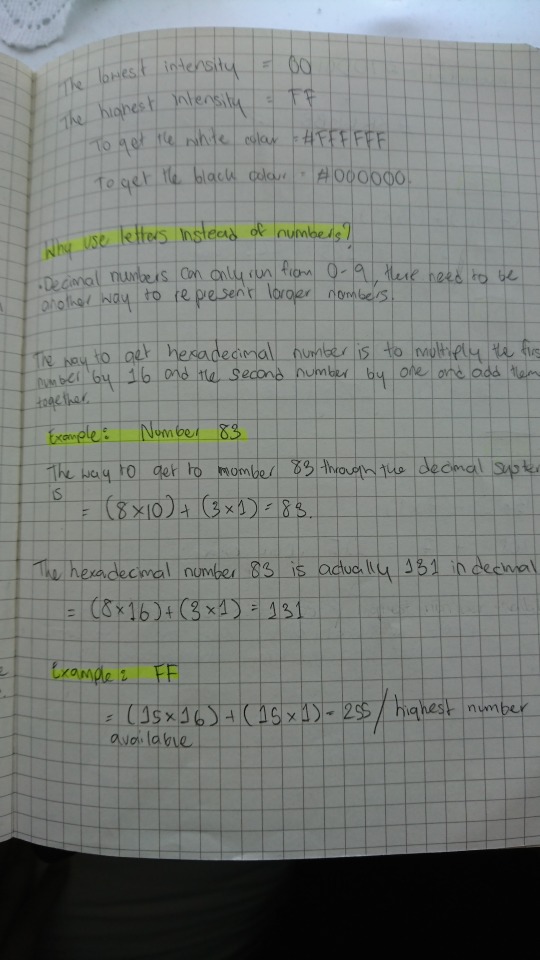 The lowest intensity = 00
The highest intensity = FF
To get the white colour = #FFFFFF
To get the black colour = #000000.
Why use letters instead of numbers?
• Decimal numbers can only run from 0-9, there need to be
another way to represent larger nombers.
The way to get hexadecimal number is to multiply the firs
number by 16 and the second number by one and add them
together.
Example: Number 83
The way to get to momber 83 through the decimal syste
is
= (8×10) + (3×1) = 83.
The hexadecimal number 83 is actually 131 in decimal
= (8×16)+(3×1) = 131
Example: FF
= (15×16) + (15×1) = 255 / highest number
available